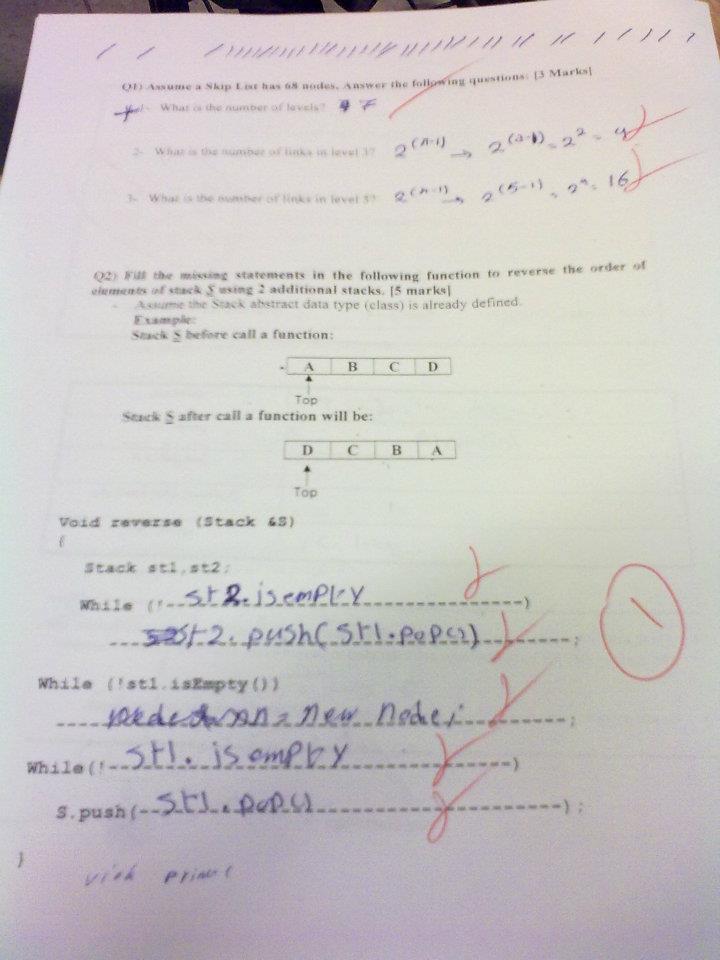 Q1) Assume a Skip List has 68 nodes. Answer the following questions: [3 Marks]
1- What is the number of levels? 7
2- What is the number of links in level 3? 2^(n-1) → 2^(3-1) = 2^2 = 4
3- What is the number of links in level 5? 2^(n-1) → 2^(5-1) = 2^4 = 16
Q2) Fill the missing statements in the following function to reverse the order of
elements of stack S using 2 additional stacks. [5 marks]
- Assume the Stack abstract data type (class) is already defined.
Example:
Stack S before call a function:
A B C D
Top
Stack S after call a function will be:
D C B A
Top
Void reverse (Stack &S)
{
Stack st1,st2;
While (!--st2.isempty--)
st2.push(st1.pop());
While (!st1.isEmpty())
= new node;
While(!--st1.isempty--)
S.push(--st1.pop()--);
}
1